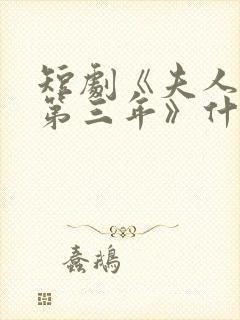 短劇《夫人
第三年》什
蠢鵝